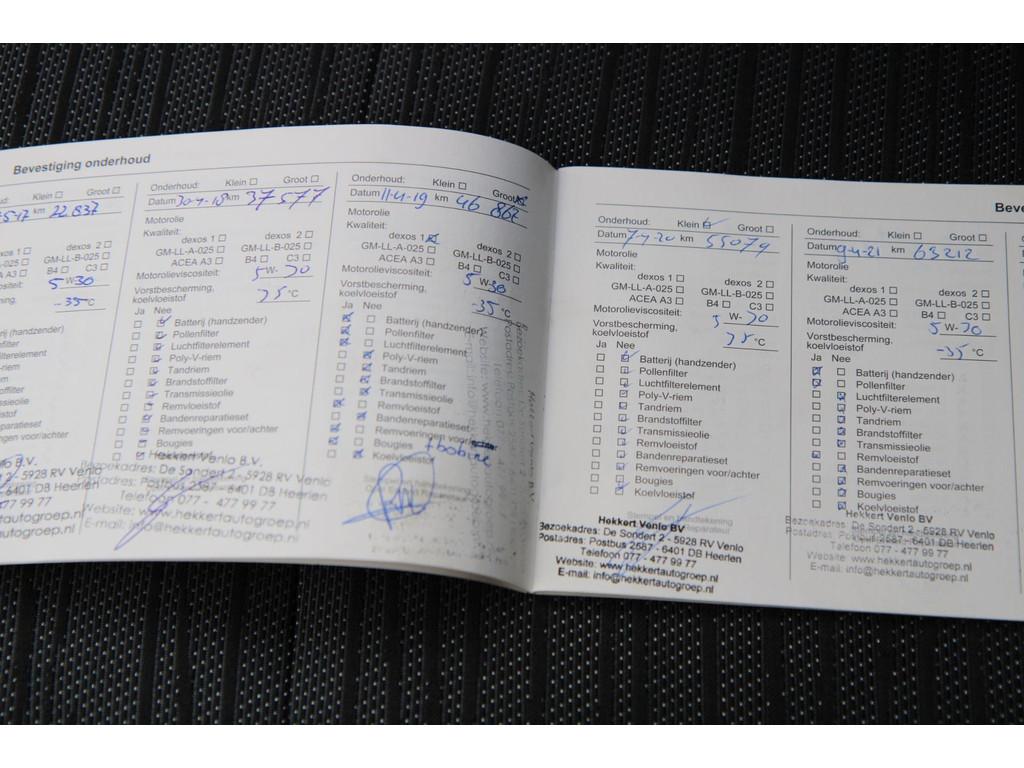 Bevestiging onderhoud
Klein ☐ Groot ☐
km 22.837
dexos 1 ☐ dexos 2 ☐
GM-LL-B-025 ☐
ACEA A3 ☐ B4 ☐ C3 ☐
5 W-30
-35 °C
Hekkert Venlo B.V.
2 - 5928 RV Venlo
- 6401 DB Heerlen
477 99 77
autogroep.nl
Onderhoud: Klein ☐ Groot ☐
Datum 30-4-18 km 37577
Motorolie
Kwaliteit:
dexos 1 ☐ dexos 2 ☐
GM-LL-A-025 ☐ GM-LL-B-025 ☐
ACEA A3 ☐ B4 ☐ C3 ☐
Motorolieviscositeit: 5 W- 30
Vorstbescherming,
koelvloeistof 35 °C
Ja Nee
Batterij (handzender)
Pollenfilter
Luchtfilterelement
Poly-V-riem
Tandriem
Brandstoffilter
Transmissieolie
Remvloeistof
Bandenreparatieset
Remvoeringen voor/achter
Bougies
Hekkert Venlo B.V.
Bezoekadres: De Sondert 2 - 5928 RV Venlo
Postadres: Postbus 2587 - 6401 DB Heerlen
Telefoon 077 - 477 99 77
Website: www.hekkertautogroep.nl
E-mail: info@hekkertautogroep.nl
Onderhoud: Klein ☐ Groot ☒
Datum 11-4-19 km 46 862
Motorolie
Kwaliteit:
dexos 1 ☒ dexos 2 ☐
GM-LL-A-025 ☐ GM-LL-B-025 ☐
ACEA A3 ☐ B4 ☐ C3 ☐
Motorolieviscositeit: 5 W-30
Vorstbescherming,
koelvloeistof -35 °C
Ja Nee
Batterij (handzender)
Pollenfilter
Luchtfilterelement
Poly-V-riem
Tandriem
Brandstoffilter
Transmissieolie
Remvloeistof
Bandenreparatieset
Remvoeringen voor/achter
Bougies + bobine
Koelvloeistof
Onderhoud: Klein ☑ Groot ☐
Datum 7-4-20 km 55079
Motorolie
Kwaliteit:
dexos 1 ☐ dexos 2 ☐
GM-LL-A-025 ☐ GM-LL-B-025 ☐
ACEA A3 ☐ B4 ☐ C3 ☐
Motorolieviscositeit: 5 W- 30
Vorstbescherming,
koelvloeistof 38 °C
Ja Nee
Batterij (handzender)
Pollenfilter
Luchtfilterelement
Poly-V-riem
Tandriem
Brandstoffilter
Transmissieolie
Remvloeistof
Bandenreparatieset
Remvoeringen voor/achter
Bougies
Koelvloeistof
Stempel en handtekening
Hekkert Venlo BV
Bezoekadres: De Sondert 2 - 5928 RV Venlo
Postadres: Postbus 2587 - 6401 DB Heerlen
Telefoon 077 - 477 99 77
Website: www.hekkertautogroep.nl
E-mail: info@hekkertautogroep.nl
Beve
Onderhoud: Klein ☐ Groot ☐
Datum 9-4-21 km 63212
Motorolie
Kwaliteit:
dexos 1 ☐ dexos 2 ☐
GM-LL-A-025 ☐ GM-LL-B-025 ☐
ACEA A3 ☐ B4 ☐ C3 ☐
Motorolieviscositeit: 5 W-30
Vorstbescherming,
koelvloeistof -35 °C
Ja Nee
Batterij (handzender)
Pollenfilter
Luchtfilterelement
Poly-V-riem
Tandriem
Brandstoffilter
Transmissieolie
Remvloeistof
Bandenreparatieset
Remvoeringen voor/achter
Bougies
Koelvloeistof
Hekkert Venlo BV
Bezoekadres: De Sondert 2 - 5928 RV Venlo
Postadres: Postbus 2587 - 6401 DB Heerlen
Telefoon 077 - 477 99 77
Website: www.hekkertautogroep.nl
E-mail: info@hekkertautogroep.nl